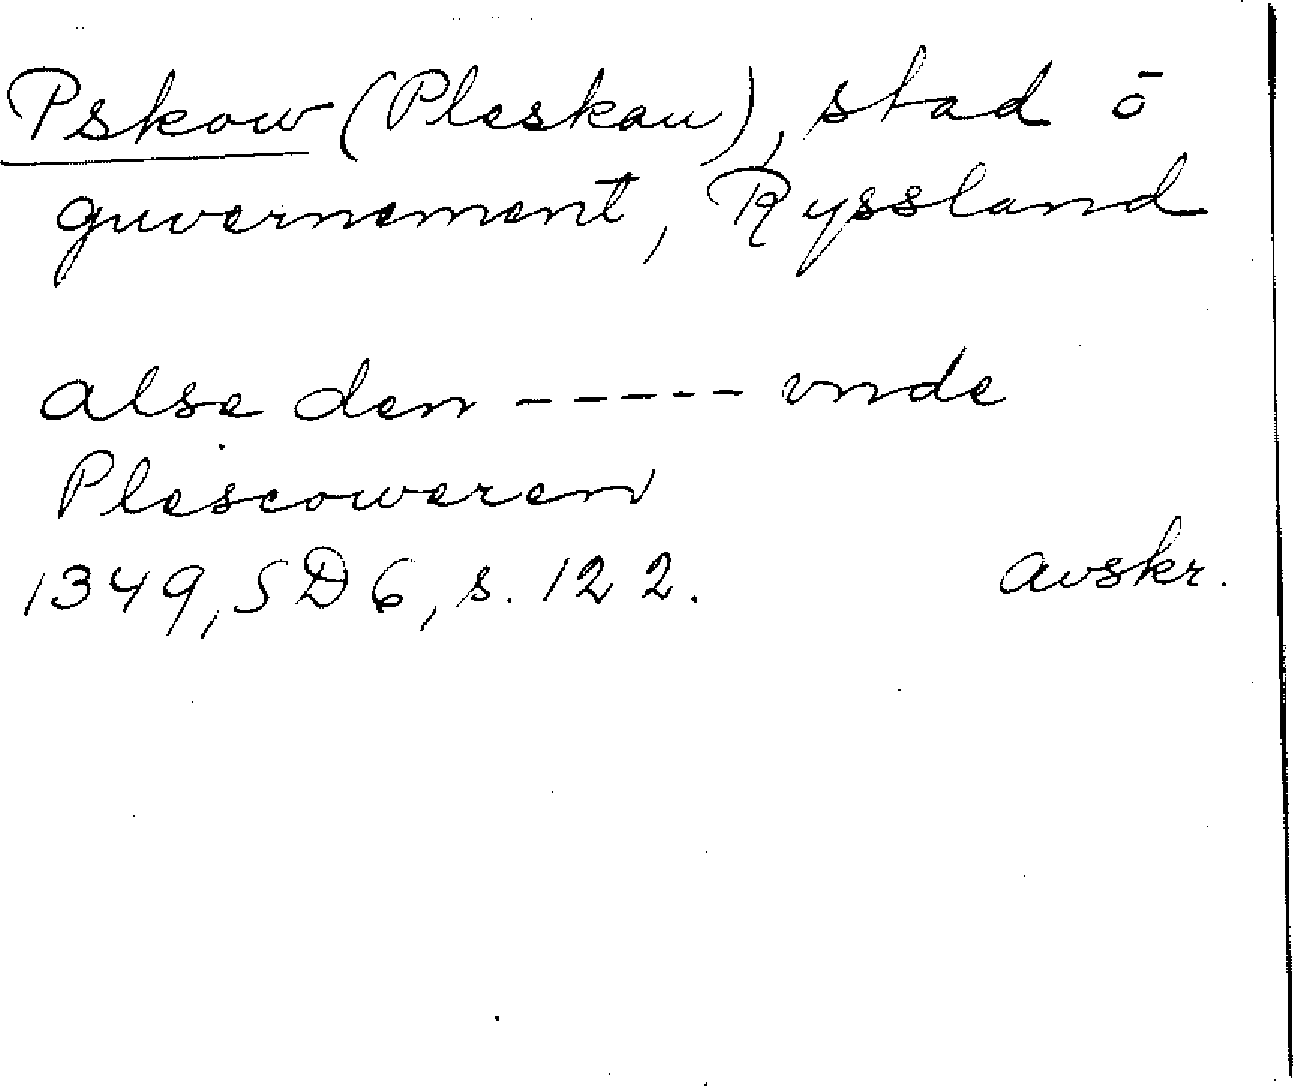 Pskow (Pleskau), stad o
guvernement, Ryssland
alse den ----- vnde
Plescoweren
1349, SD 6, s. 122. avskr.